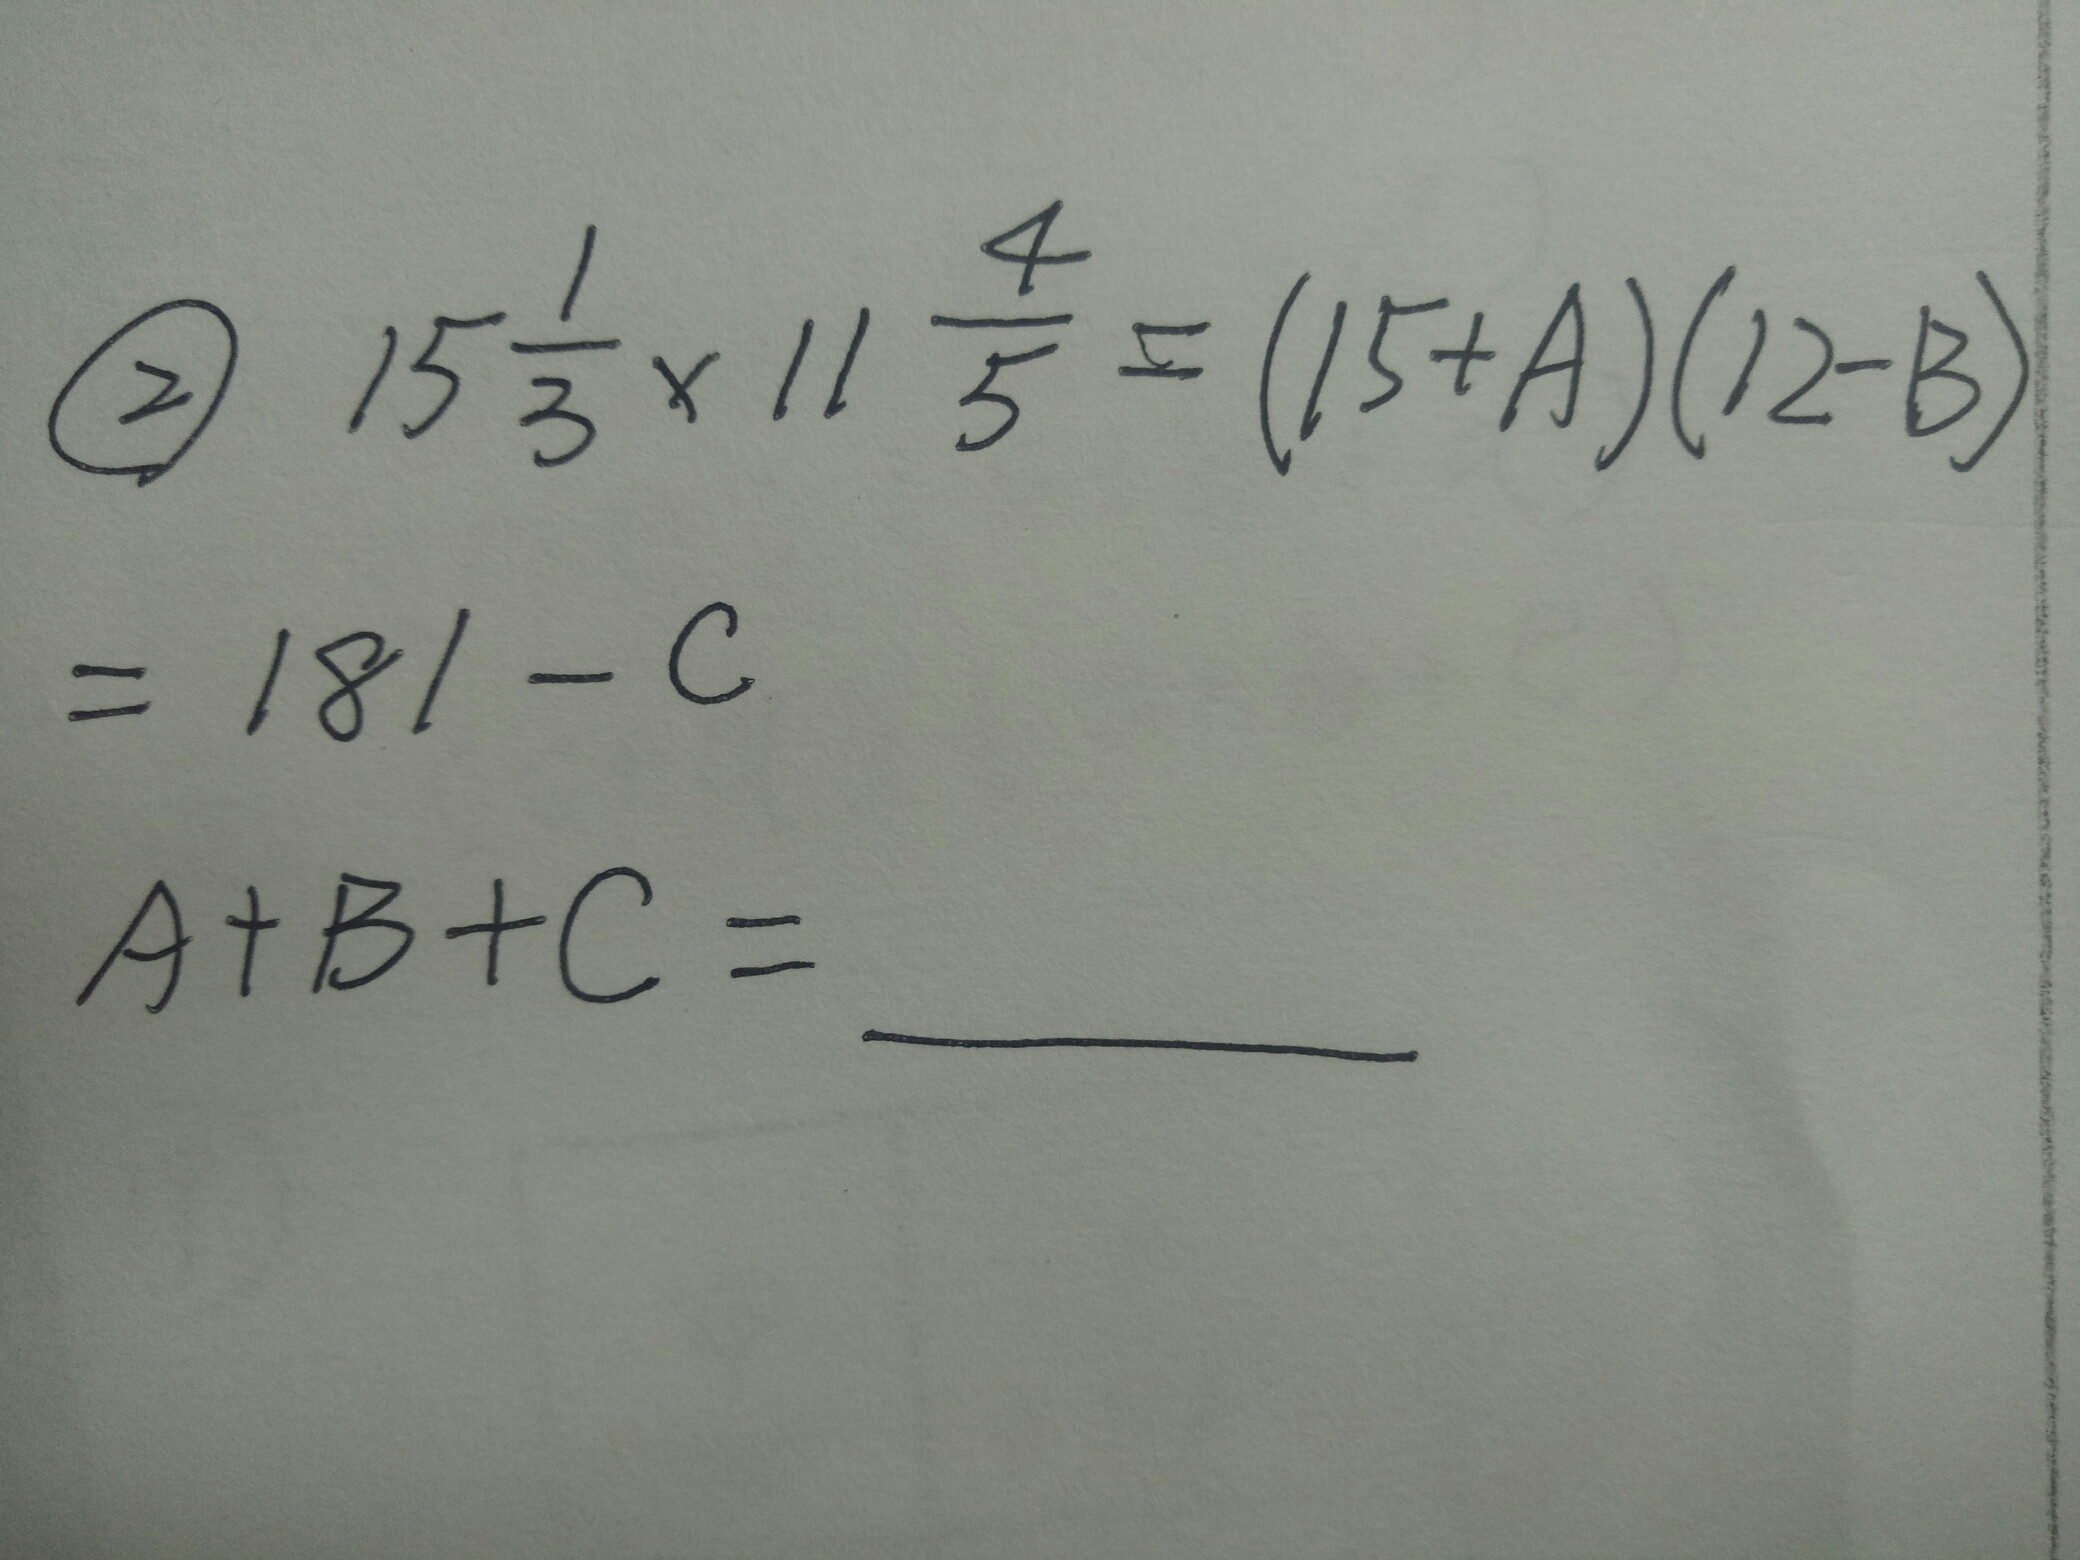 ② 15 1/3 × 11 4/5 = (15+A)(12-B)
= 181 - C
A+B+C = ______